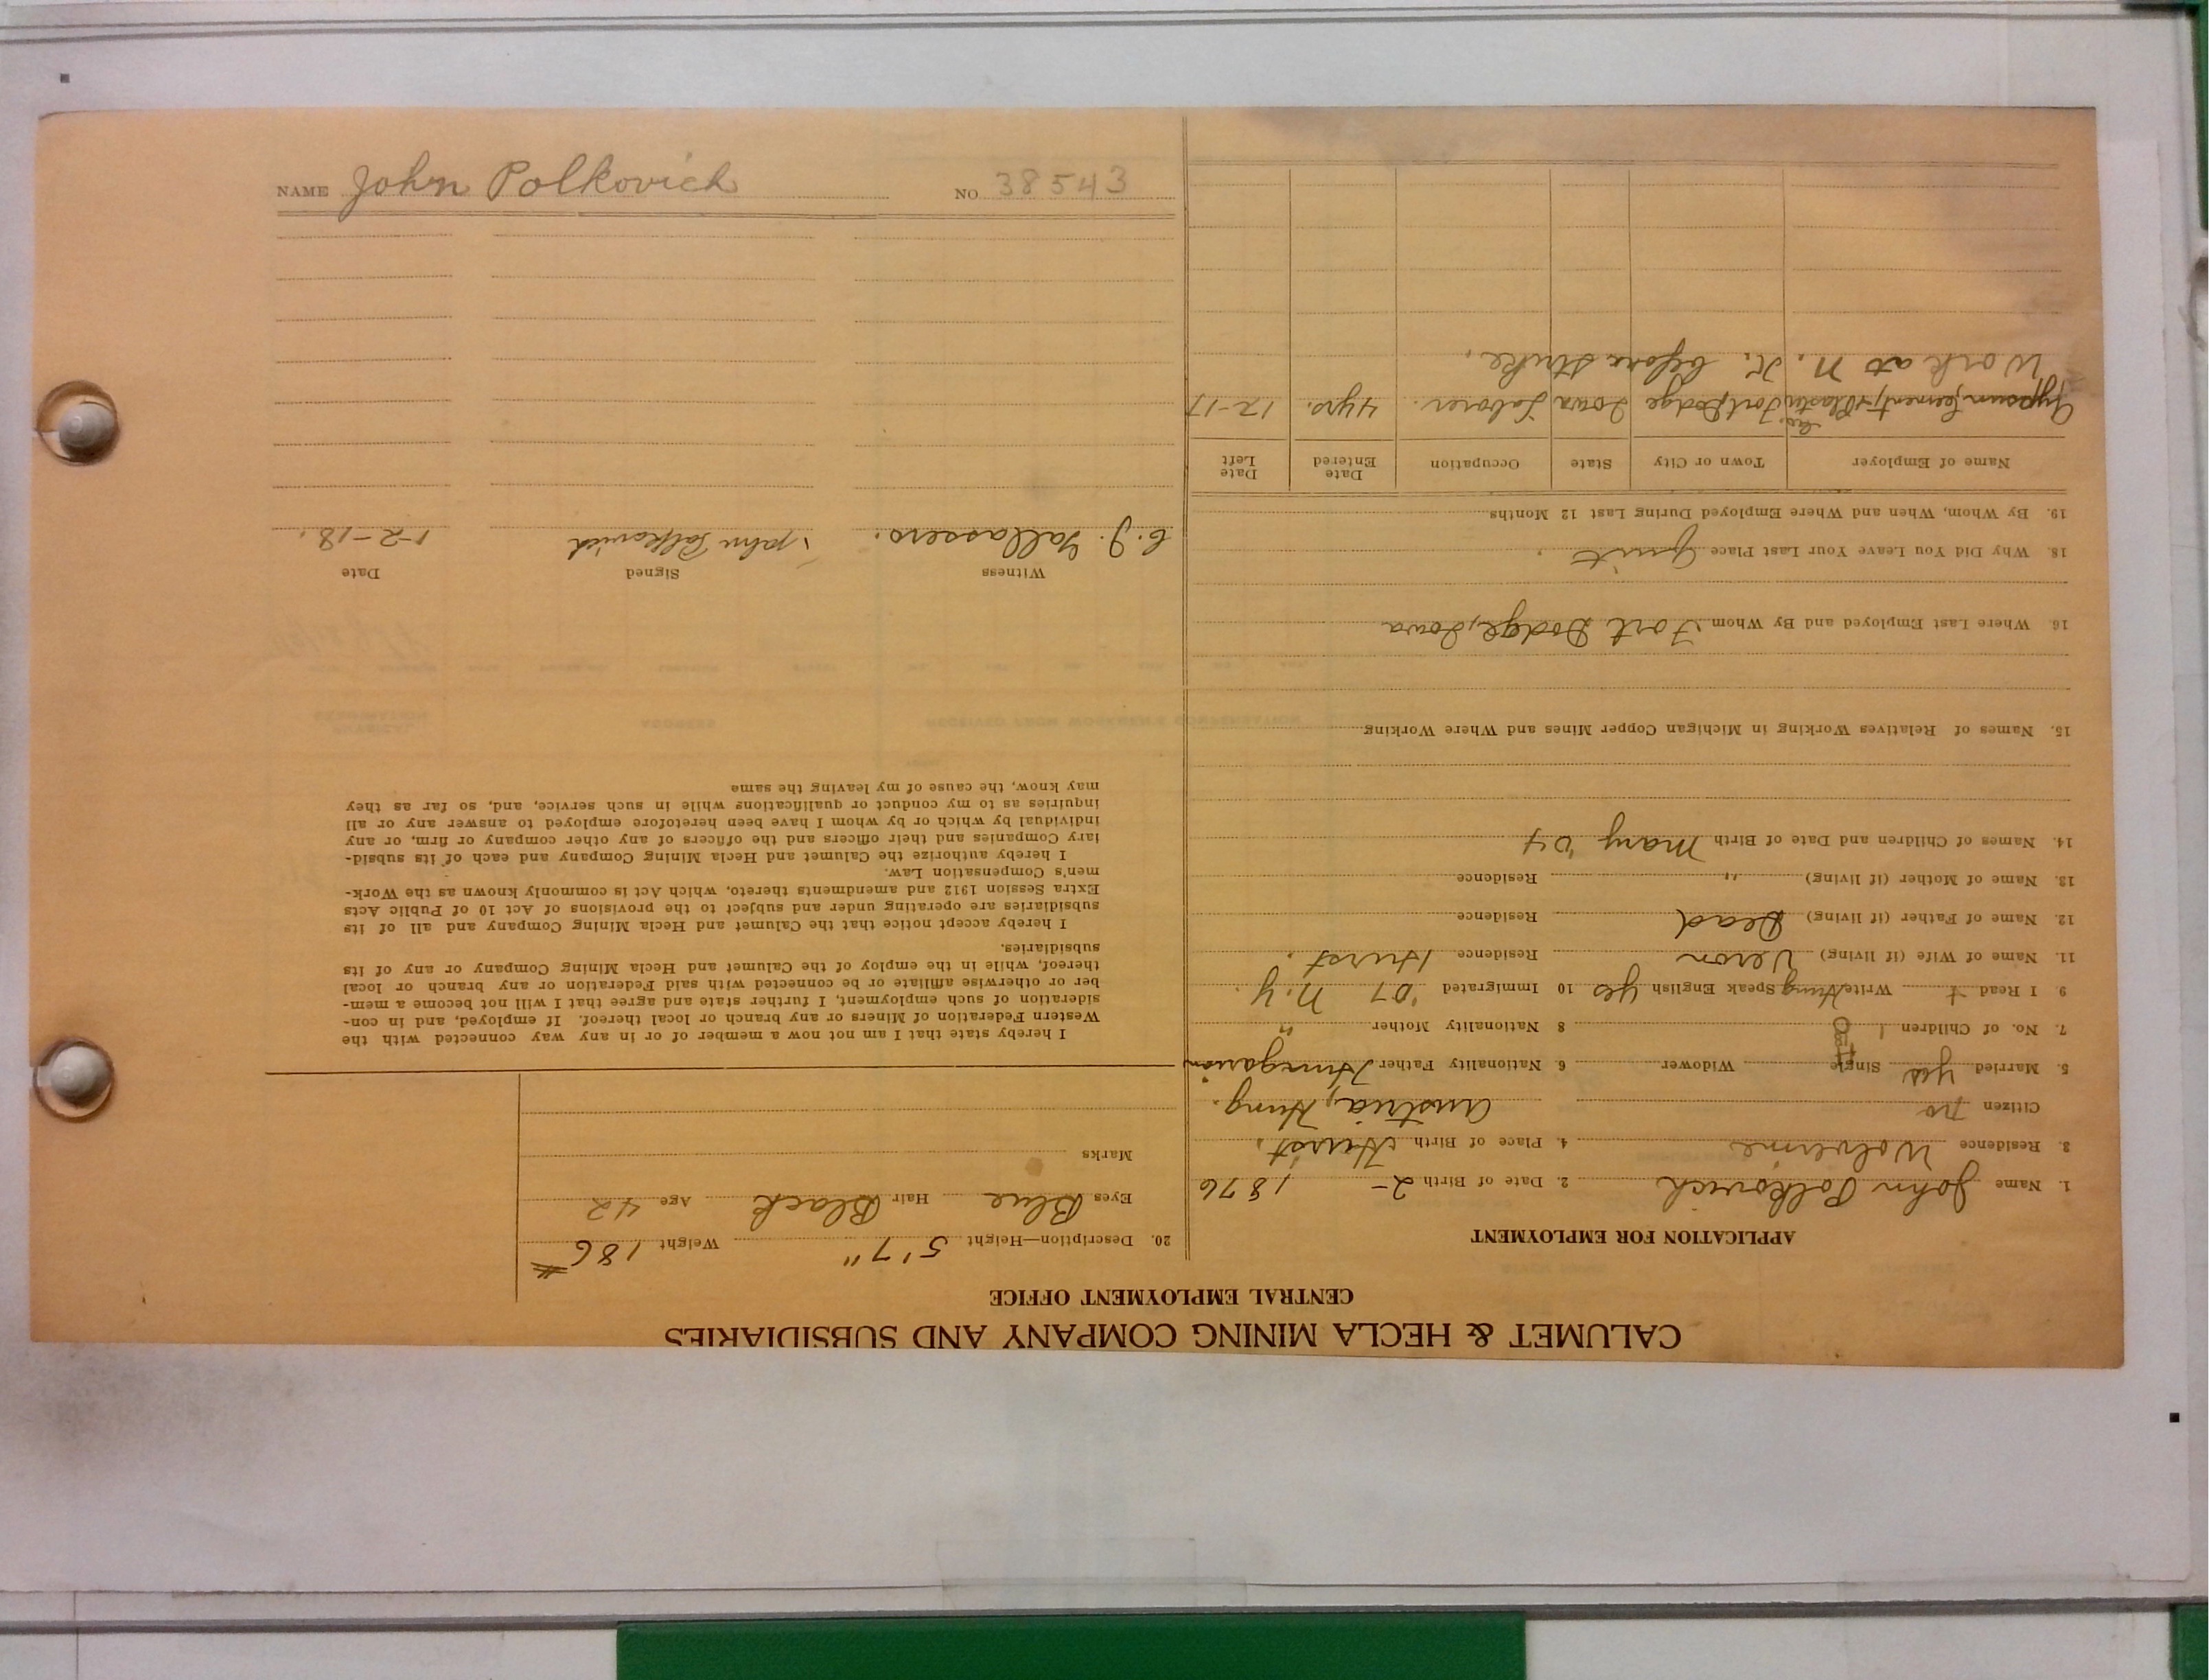 CALUMET & HECLA MINING COMPANY AND SUBSIDIARIES
CENTRAL EMPLOYMENT OFFICE
APPLICATION FOR EMPLOYMENT
1. Name John Polkovich 2. Date of Birth 2- 1876
3. Residence Wolverine 4. Place of Birth Hurst,
Citizen no Austria, Hung.
5. Married yes Single Widower 6. Nationality Father Hungarian
7. No. of Children 1 8 Nationality Mother "
9 I Read + Write Hung Speak English yes 10 Immigrated '07 N.Y.
11. Name of Wife (if living) Veron Residence Hurst.
12. Name of Father (if living) Dead Residence
13. Name of Mother (if living) " Residence
14. Names of Children and Date of Birth Mary '04
15. Names of Relatives Working in Michigan Copper Mines and Where Working
16. Where Last Employed and By Whom Fort Dodge, Iowa
18. Why Did You Leave Your Last Place Quit.
19. By Whom, When and Where Employed During Last 12 Months
Name of Employer Town or City State Occupation Date Entered Date Left
Gypsum, Cement, + Plaster Co. Fort Dodge Iowa Laborer. 4 yrs. 12-17
Work at N. K. before strike.
20. Description—Height 5'7" Weight 186 #
Eyes Blue Hair Black Age 42
Marks
I hereby state that I am not now a member of or in any way connected with the
Western Federation of Miners or any branch or local thereof. If employed, and in con-
sideration of such employment, I further state and agree that I will not become a mem-
ber or otherwise affiliate or be connected with said Federation or any branch or local
thereof, while in the employ of the Calumet and Hecla Mining Company or any of its
subsidiaries.
I hereby accept notice that the Calumet and Hecla Mining Company and all of its
subsidiaries are operating under and subject to the provisions of Act 10 of Public Acts
Extra Session 1912 and amendments thereto, which Act is commonly known as the Work-
men's Compensation Law.
I hereby authorize the Calumet and Hecla Mining Company and each of its subsid-
iary Companies and their officers and the officers of any other company or firm, or any
individual by which or by whom I have been heretofore employed to answer any or all
inquiries as to my conduct or qualifications while in such service, and, so far as they
may know, the cause of my leaving the same
Witness Signed Date
John Polkovich 1-2-18.
NAME John Polkovich NO 38543